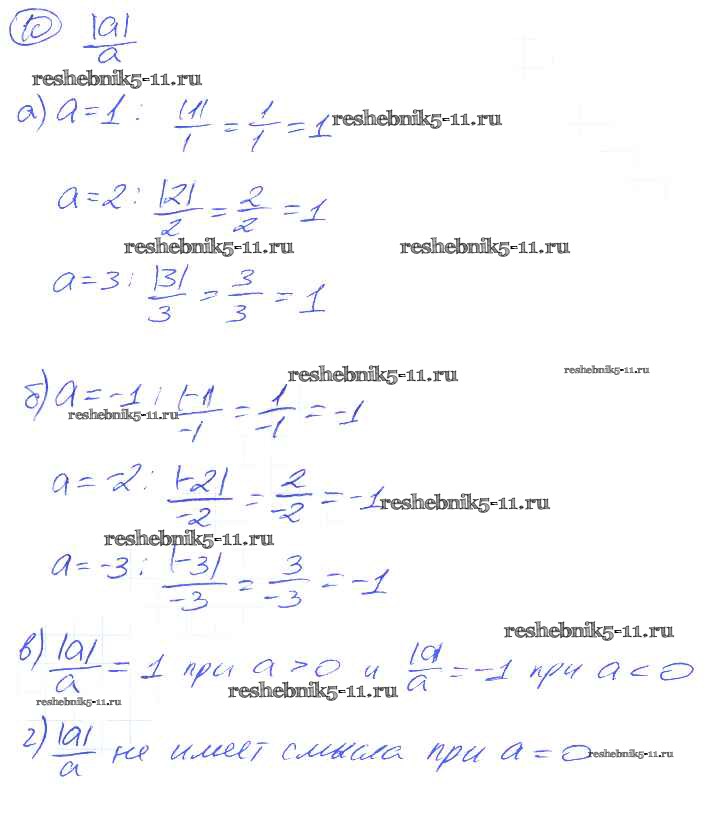 10 |a|/a
reshebnik5-11.ru
а) a=1: |1|/1 = 1/1 = 1 reshebnik5-11.ru
a=2: |2|/2 = 2/2 = 1
reshebnik5-11.ru reshebnik5-11.ru
a=3: |3|/3 = 3/3 = 1
reshebnik5-11.ru reshebnik5-11.ru
б) a=-1: |-1|/-1 = 1/-1 = -1
reshebnik5-11.ru
a=-2: |-2|/-2 = 2/-2 = -1 reshebnik5-11.ru
reshebnik5-11.ru
a=-3: |-3|/-3 = 3/-3 = -1
reshebnik5-11.ru
в) |a|/a = 1 при a>0 и |a|/a = -1 при a<0
reshebnik5-11.ru
reshebnik5-11.ru
г) |a|/a не имеет смысла при a=0 reshebnik5-11.ru